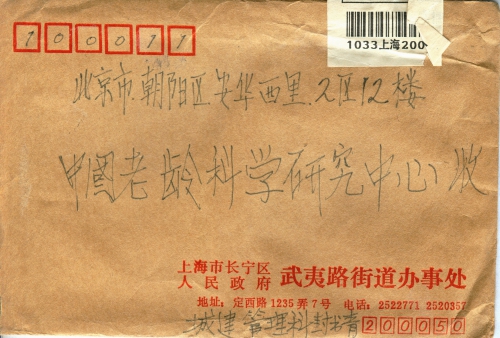 1033上海200
100011
北京市朝阳区安华西里.2区12楼
中国老龄科学研究中心收
上海市长宁区
人民政府 武夷路街道办事处
地址: 定西路1235弄7号 电话: 2522771 2520357
城建管理科封靖
200050